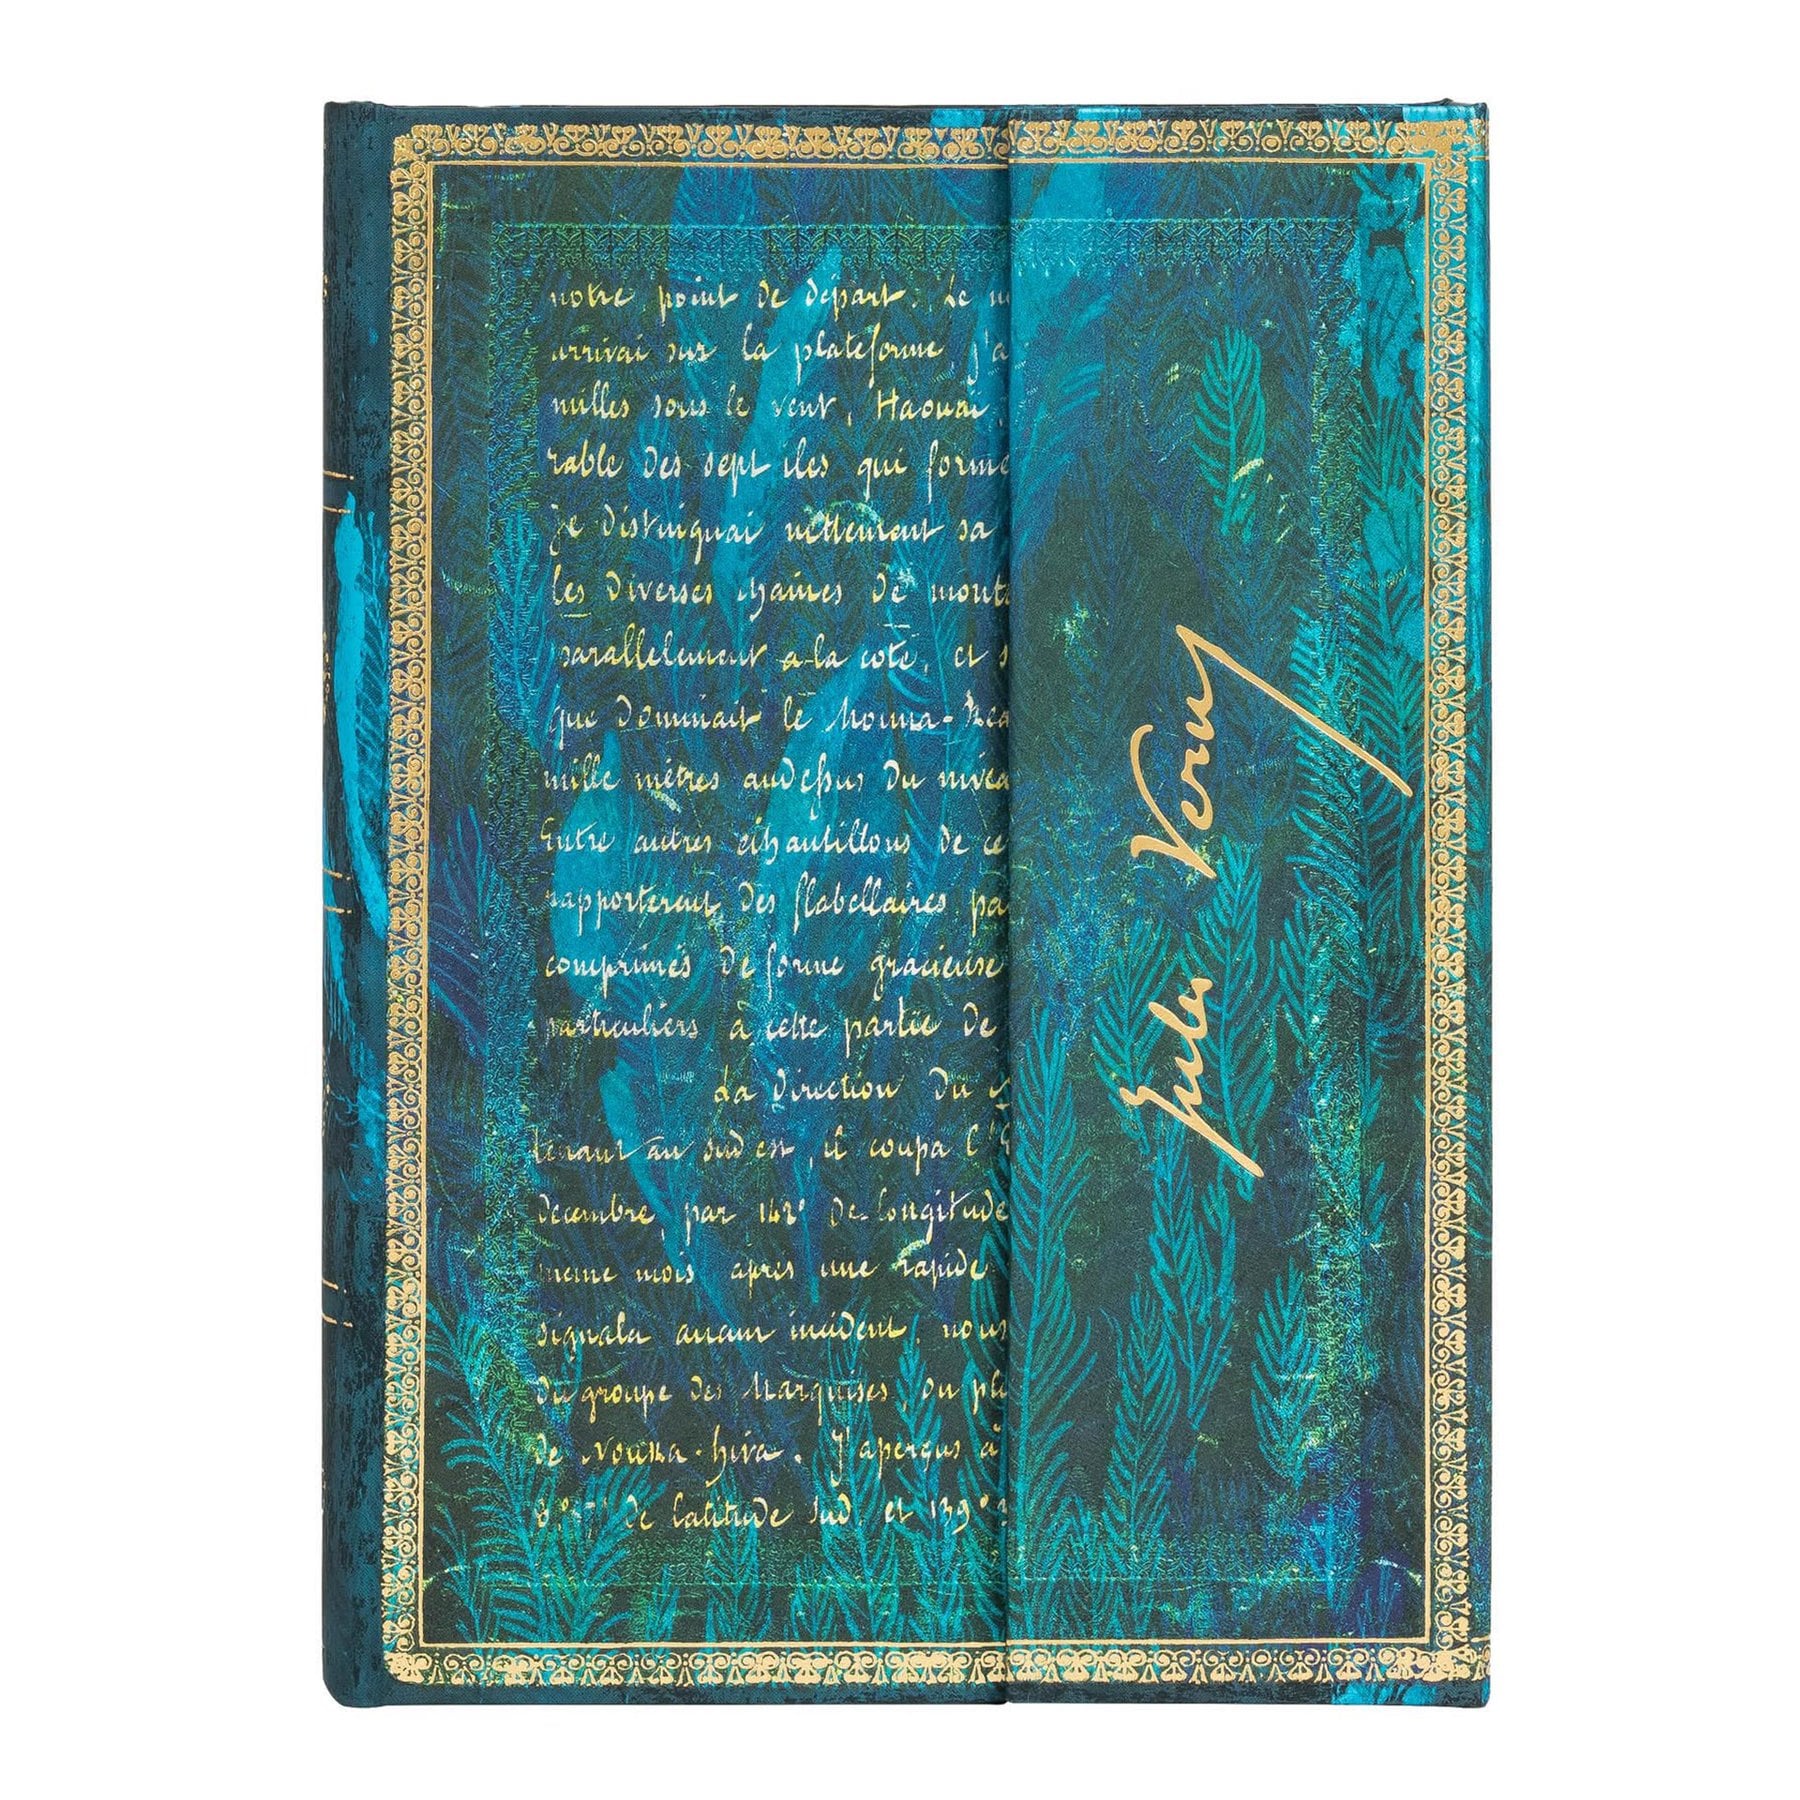 notre point de départ. Le m
arrivai sur la plateforme j'a
milles sous le vent, Haouaï,
rable des sept iles qui forme
Je distinguai nettement sa
les diverses chaines de monta
parallelement a la cote, et s
que dominait le Mouna-Rea
mille mètres audessus du nivea
Entre autres échantillons de ce
rapporterent des flabellaires pa
comprimés de forme gracieuse
particuliers à cette partie de
La direction du
tenant au sud est, il coupa l'E
decembre par 142° de longitude
meme mois après une rapide
signala aucun incident, nous
du groupe des Marquises, ou pla
de Nouka-hiva. J'aperçus à
8°57' de latitude sud et 139°3
Jules Verne